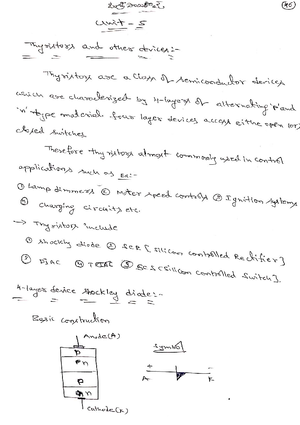 46
Unit - 5
Thyristors and other devices:-
Thyristors are a class of semiconductor devices
which are characterized by 4-layers of alternating 'p' and
'n' type material. four layer devices access either open (or)
closed switches.
Therefore thyristors almost commonly used in control
applications such as Ex:-
① Lamp dimmers ② Motor speed controls ③ Ignition systems
④ charging circuits etc.
→ Thyristors include
① shockley diode ② SCR [Silicon controlled Rectifier]
③ DIAC ④ TRIAC ⑤ SCS [Silicon controlled Switch].
4-layer device shockley diode:-
Basic construction
Anode(A)
Symbol
P
n
P
n
+ -
A K
Cathode(K)